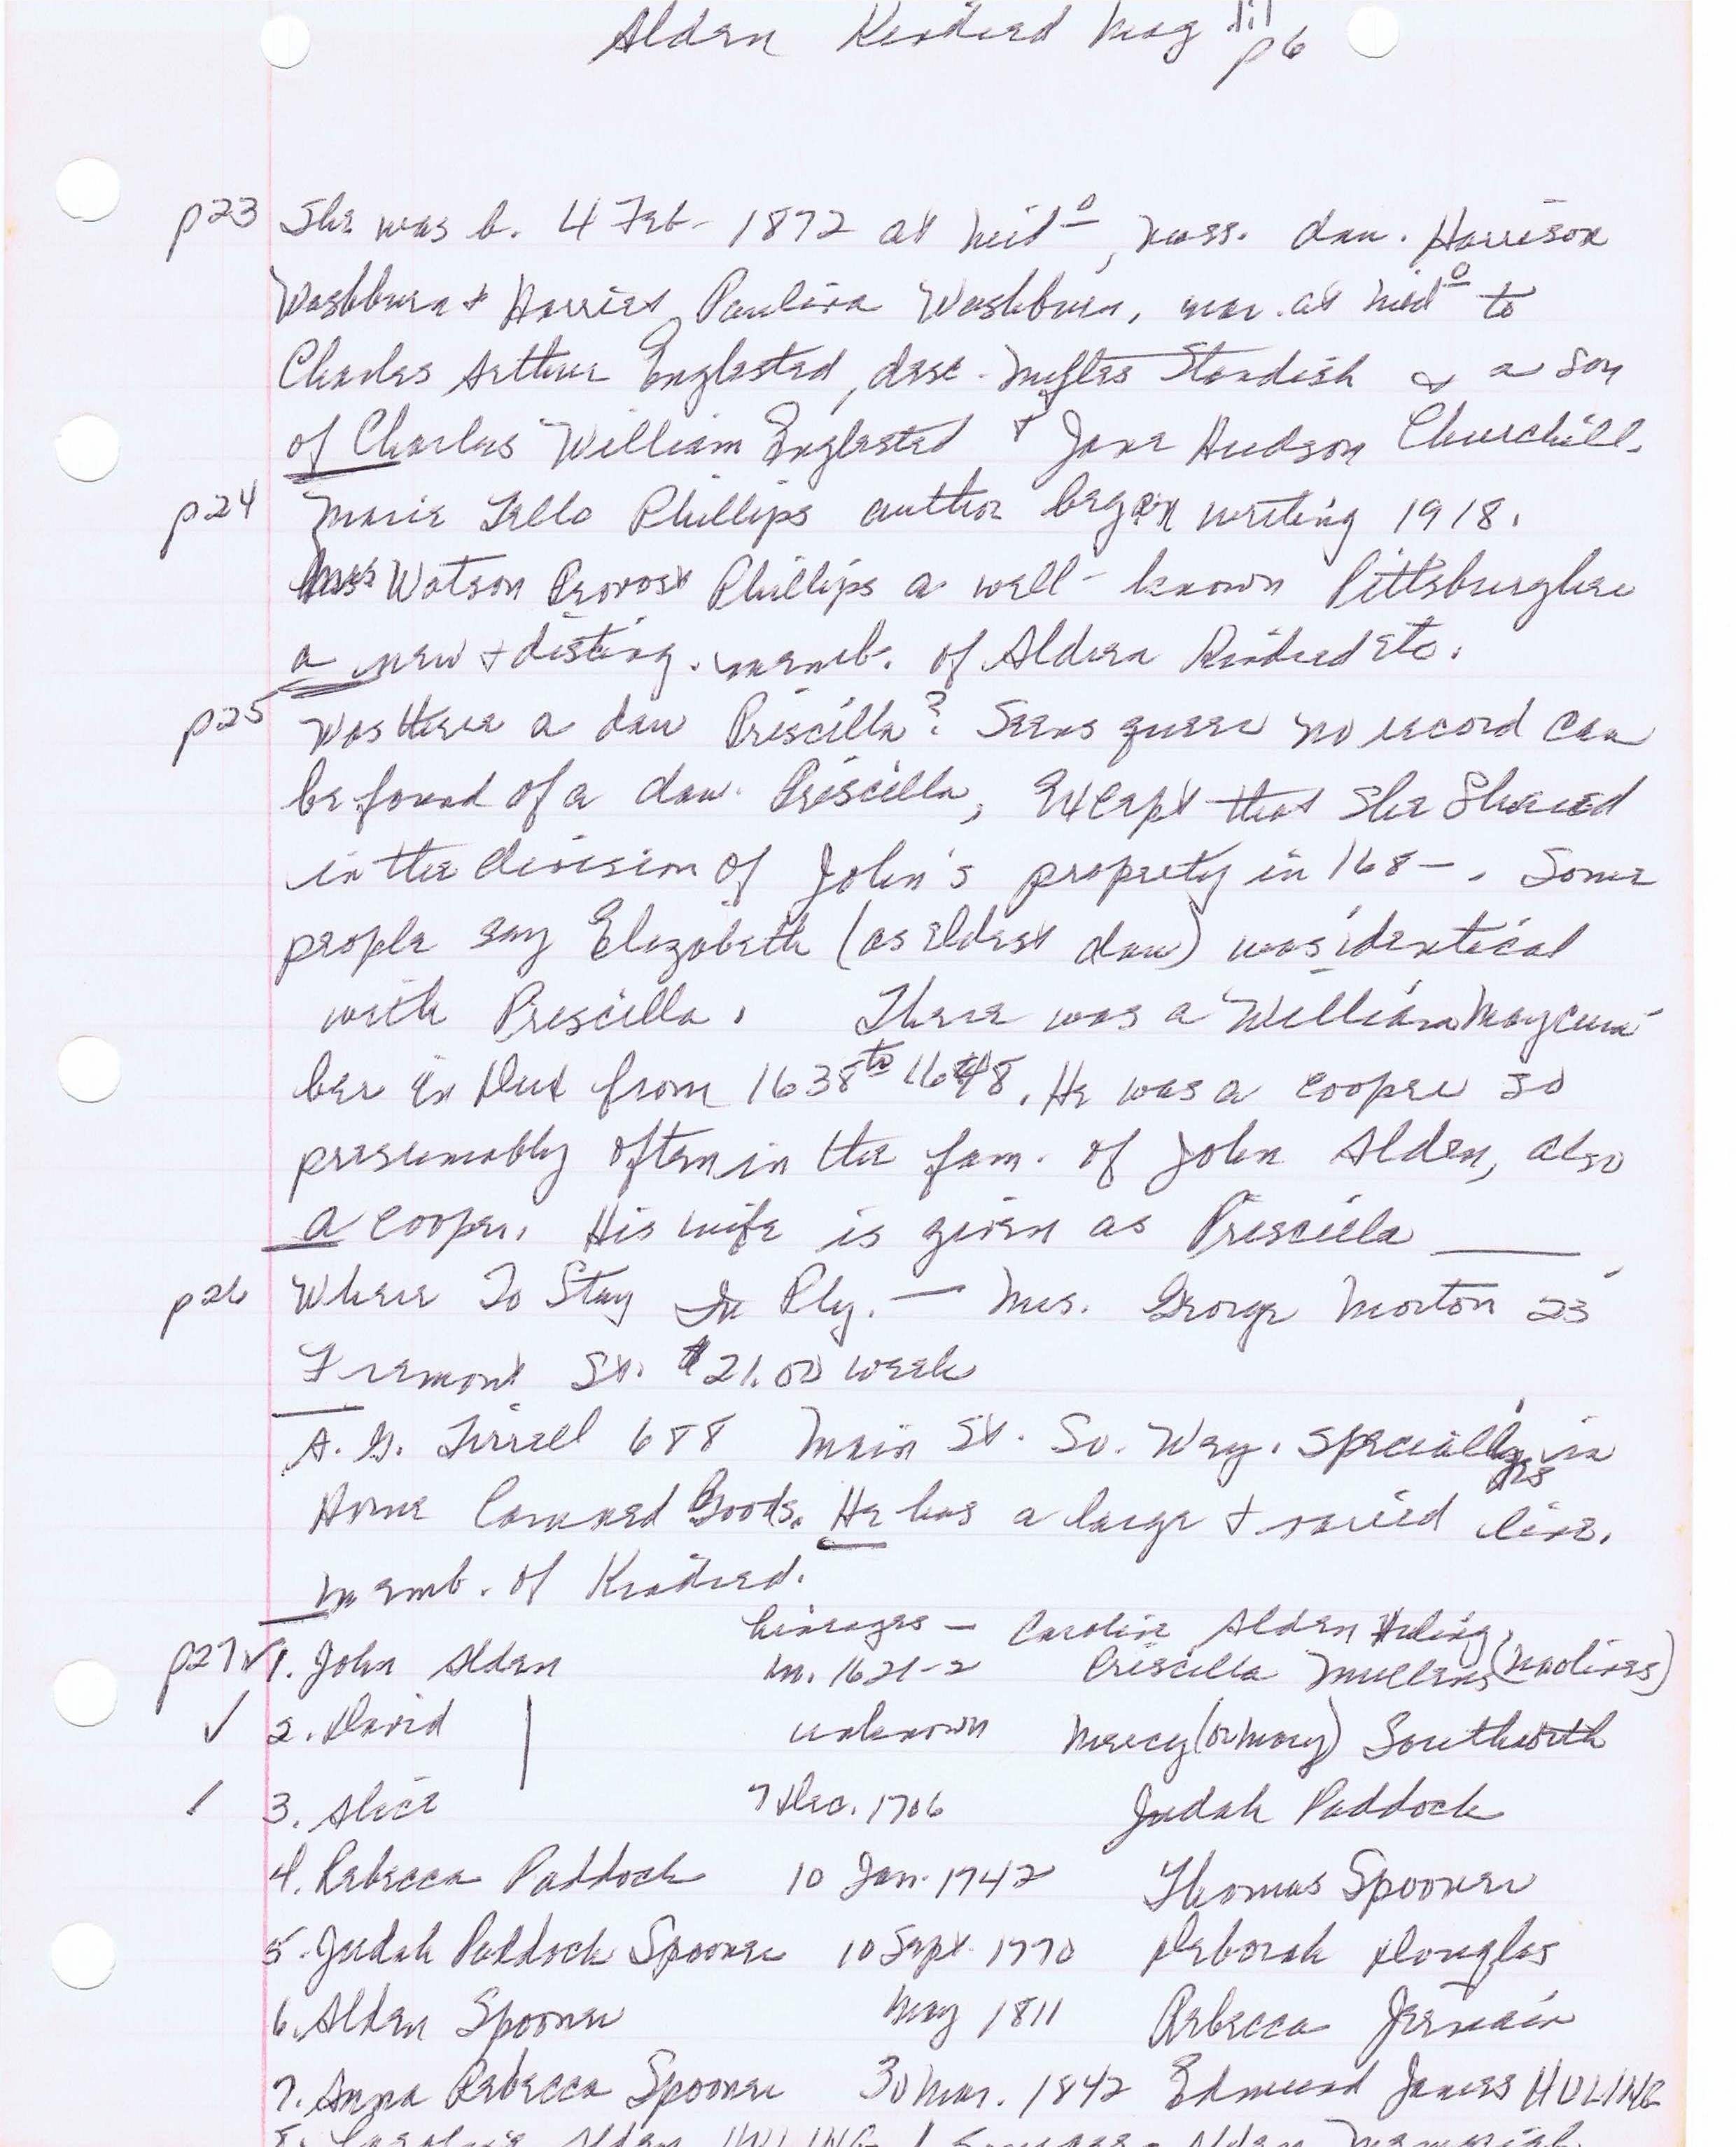 Alden Kindred Mag III
p6
p23 She was b. 4 Feb- 1872 at Midº, Mass. dau. Harrison
Washburn + Harriet Paulina Washburn, mar. at Midº to
Charles Arthur Englested, desc. Myles Standish & a son
of Charles William Englested & Jane Hudson Churchill.
p24 Marie Tello Phillips author began writing 1918.
Mrs Watson Provost Phillips a well-known Pittsburgher
a new + disting. memb. of Alden Kindred etc.
p25 Was there a dau Priscilla? Seems queer no record can
be found of a dau. Priscilla, except that she shared
in the division of John's property in 168-. Some
people say Elizabeth (as eldest dau) was identical
with Priscilla. There was a William Maycum-
ber in Dux from 1638 to 1648. He was a cooper so
presumably often in the fam. of John Alden, also
a cooper. His wife is given as Priscilla ____.
p26 Where To Stay In Ply. — Mrs. George Morton 23
Fremont St. $21.00 week
A. G. Tirrell 688 Main St. So. Wey. Specializes in
Home Canned Goods. He has a large & varied line.
memb. of Kindred.
Lineages - Caroline Alden Huling
p27 ✓ 1. John Alden m. 1621-2 Priscilla Mullens (Molines)
✓ 2. David unknown Mercy (or Mary) Southworth
/ 3. Alice 7 Dec. 1706 Judah Paddock
4. Rebecca Paddock 10 Jan. 1742 Thomas Spooner
5. Judah Paddock Spooner 10 Sept. 1770 Deborah Douglas
6. Alden Spooner May 1811 Rebecca Jermain
7. Anna Rebecca Spooner 30 Mar. 1842 Edmund James HULING
8. Caroline Alden HULING